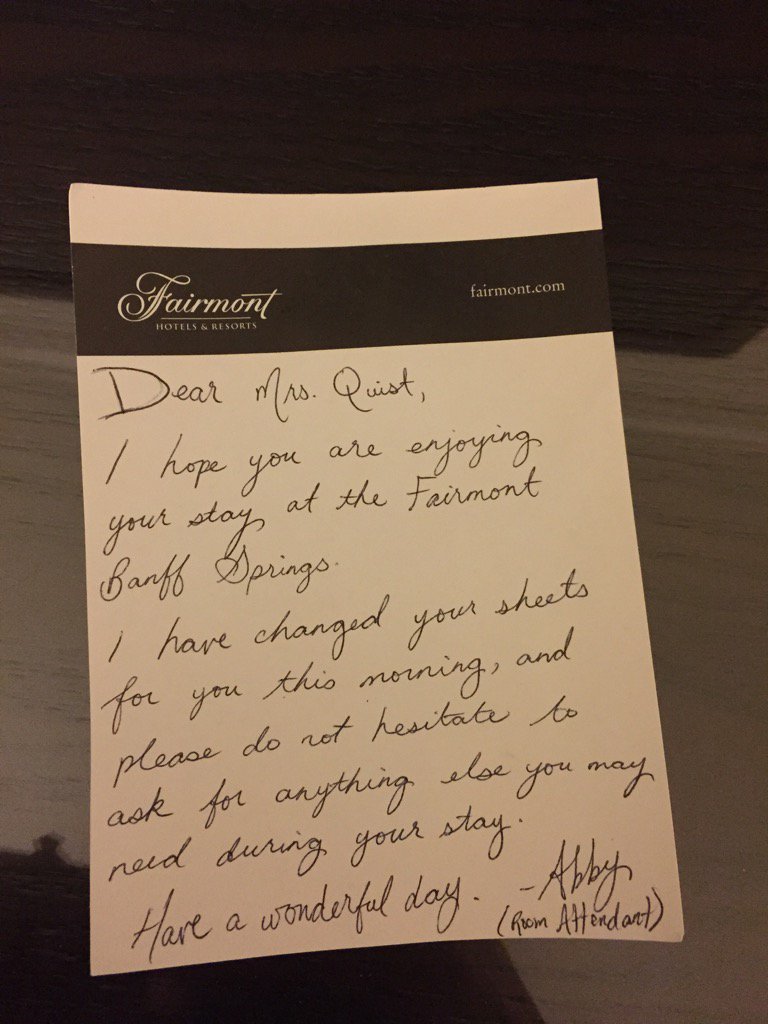 Fairmont
HOTELS & RESORTS
fairmont.com
Dear Mrs. Quist,
I hope you are enjoying
your stay at the Fairmont
Banff Springs.
I have changed your sheets
for you this morning, and
please do not hesitate to
ask for anything else you may
need during your stay.
Have a wonderful day. - Abby
(Room Attendant)